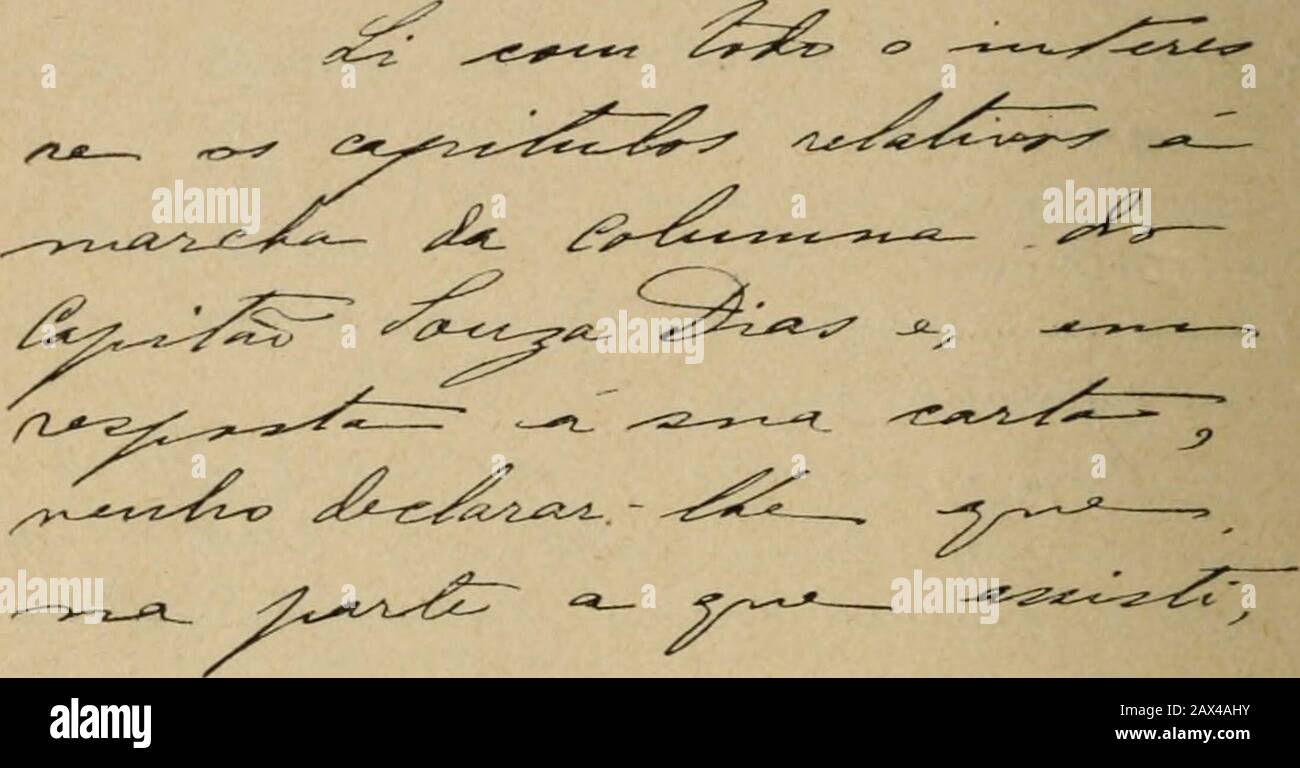 Li com todo o interes
se os capitulos relativos á
marcha da columna do
Capitão Souza Dias e, em
resposta á sua carta,
venho declarar-lhe que,
na parte a que assisti,
alamy
Image ID: 2AX4AHY
www.alamy.com